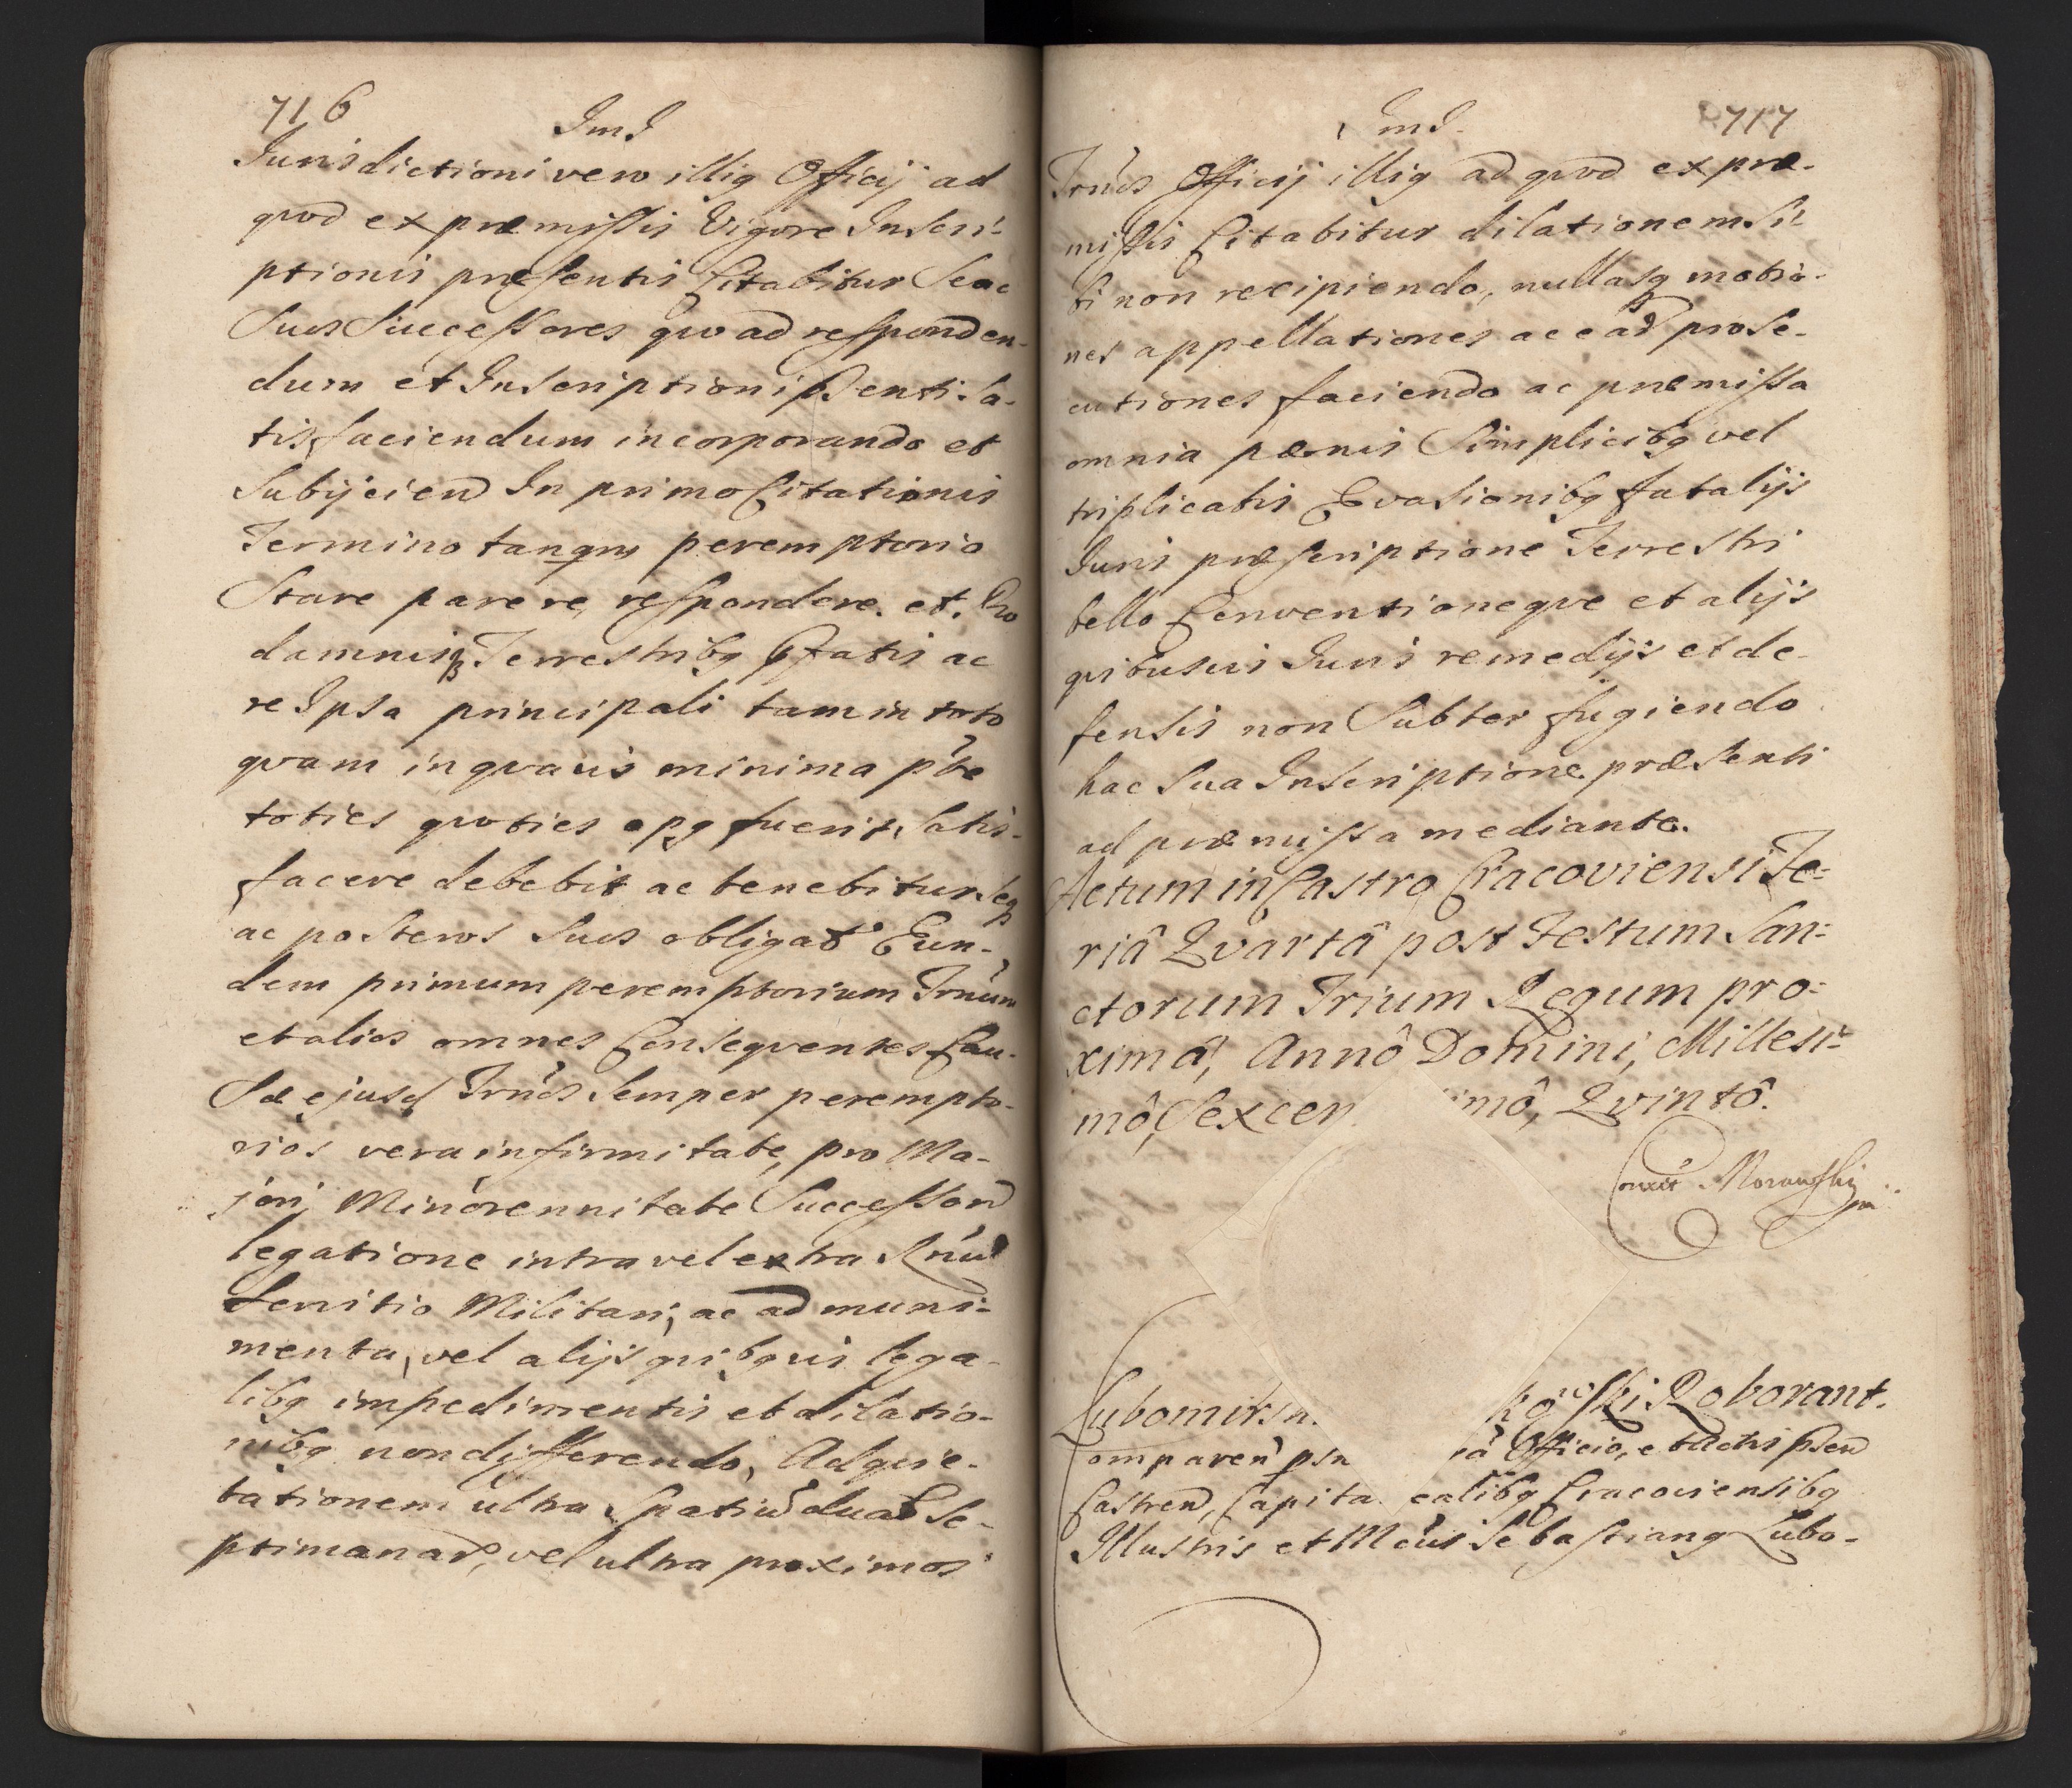 716
Jurisdictioni vero illig Officij ad
quod ex præmissis Vigore Inscri-
ptionis præsentis Citabitur Se ac
Suos Successores quo ad responden-
dum et Inscriptioni psenti sa-
tisfaciendum incorporando et
Subijciend In primo Citationis
Termino tanqm peremptorio
Stare parere respondere et Pro
damnis Terrestribg ac
re Ipsa principali tam in toto
quam in quavis minima pte
toties quoties opg fuerit, satis-
facere debebit ac tenebitur seqz
ac posteros suos obligat Eun-
dem primum peremptorium Trnum
et alios omnes Consequentes Cau-
sæ ejusd Trnos semper perempto-
rios vera infirmitate, pro Ma-
jori, Minorennitate Successor
legatione intra vel extra Rnu
Servitio Militari, ac ad muni-
menta, vel alijs quibgvis lega-
libg impedimentis et dilatio-
nibg non differendo, Ad quie-
tationem ultra Spatiu duar Se-
ptimanar, vel ultra proximos
717
Trnos Officij illig ad quod ex præ-
missis Citabitur dilationem si-
bi non recipiendo, nullasq motio-
nes appellationes ac ear prose-
cutiones faciendo ac præmissa
omnia pænis Simplicibg vel
triplicatis Evasionibg fatalijs
Juris præscriptione Terrestri
bello Conventioneque et alijs
quibusvis Juris remedijs et de-
fensis non Subter fugiendo
hac sua Inscriptione præsenti
ad præmissa mediante.
Actum in Castro Cracoviensi Fe-
riâ Qvartâ post Festum San-
ctorum Trium Regum pro-
ximâ, Annô Domini, Millesi-
mô, Sexcen imô, Qvintô.
Lubomirs Roborant.
omparen psn Officio, et Actis psen
Castren, Capita ealibg Cracoviensibg
Illustris et Mcus Sebastiang Lubo-